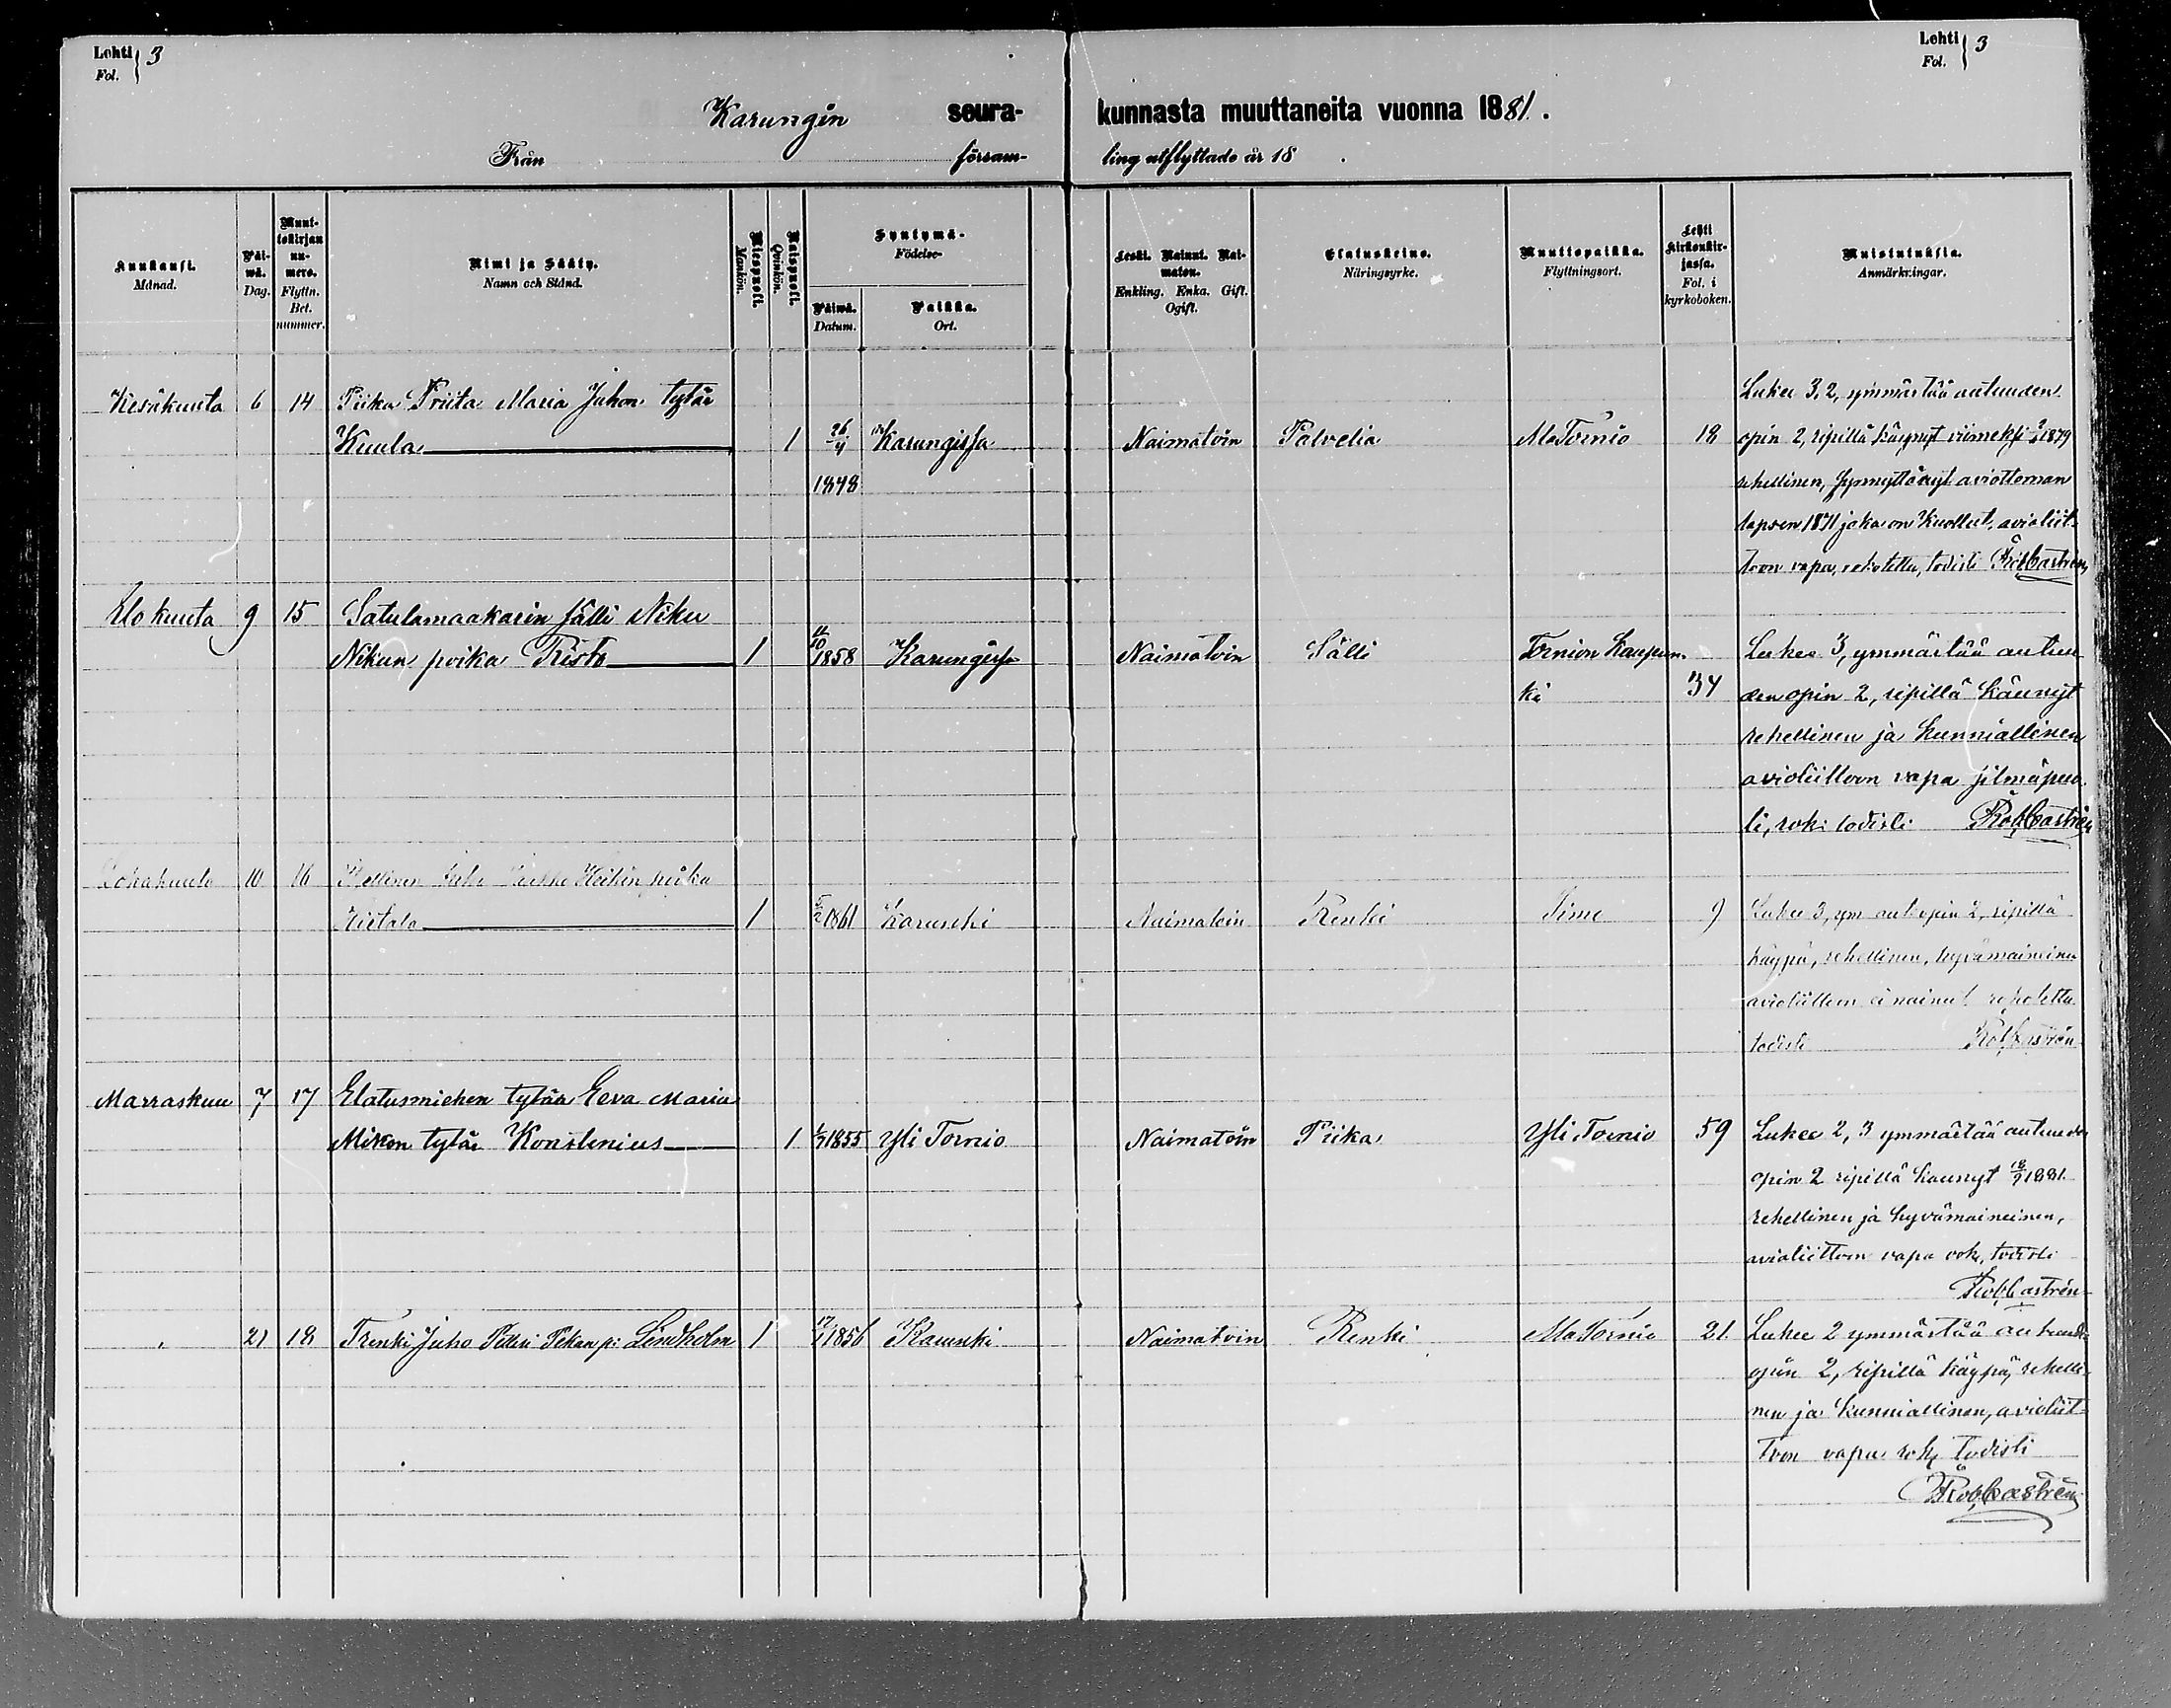 Lehti Fol. } 3
Lehti Fol. } 3
Karungin seura- kunnasta muuttaneita vuonna 1881.
Från församling utflyttade år 18 .
Kuukausi. Månad.
Päiwä. Dag.
Muuttokirjan numero. Flyttn. Bet. nummer.
Nimi ja Sääty. Namn och Stånd.
Miespuoli. Mankön.
Naispuoli. Qvinkön.
Syntymä- Födelse-
Päiwä. Datum.
Paikka. Ort.
Leski. Nainut. Naimaton. Enkling. Enka. Gift. Ogift.
Elatuskeino. Näringsyrke.
Muuttopaikka. Flyttningsort.
Lehti kirkonkirjassa. Fol. i kyrkoboken.
Muistutuksia. Anmärkningar.
Kesäkuuta 6 14 Piika Priita Maria Juhon tytär
Kuula 1 26/4 Karungissa Naimatoin Palvelia AlaTornio 18
1848
Lukee 3,2, ymmärtää autuuden
opin 2, ripillä käynyt viimeksi 1879
rehellinen, synnyttänyt aviottoman
lapsen 1871 joka on kuollut, avioliit-
toon vapa, rokotettu, todisti Rob Castrén
Elokuuta 9 15 Satulamaakarin sälli Niku
Nikun poika Risto 1 4/10 1858 Karungissa Naimatoin Sälli Tornion Kaupun-
ki 34
Lukee 3, ymmärtää autuu-
den opin 2, ripillä käunyt
rehellinen ja kunniallinen
avioliittoon vapa silmäpuo-
li, rok: todisti Rob Castrén
Lokakuuta 10 16 Heikin poika
1 5/2 1861 Karunki Naimatoin Renki Simo 9
Lukee 3, ym aut opin 2, ripillä
käypä, rehellinen, hyvämaineinen
avioliittoon ei nainut rokotettu
todisti Rob Castrén
Marraskuu 7 17 Elatusmiehen tytär Eeva Maria
Mikon tytär Konstenius 1 1/7 1855 Yli Tornio Naimatoin Piika Yli Tornio 59
Lukee 2, 3 ymmärtää autuuden
opin 2 ripillä kaunyt 18/9 1881.
rehellinen ja hyvämaineinen,
avioliittoon vapa rok, todisti
Rob Castrén
" 21 18 Trenki Juho Petteri Pekan p: Lindholm 1 17/1 1856 Karunki Naimatoin Renki AlaTornio 21
Lukee 2 ymmärtää autuud:
opin 2, ripillä käypä, rehelli-
nen ja kunniallinen, avioliit-
toon vapa rok, todisti
Rob Castrén